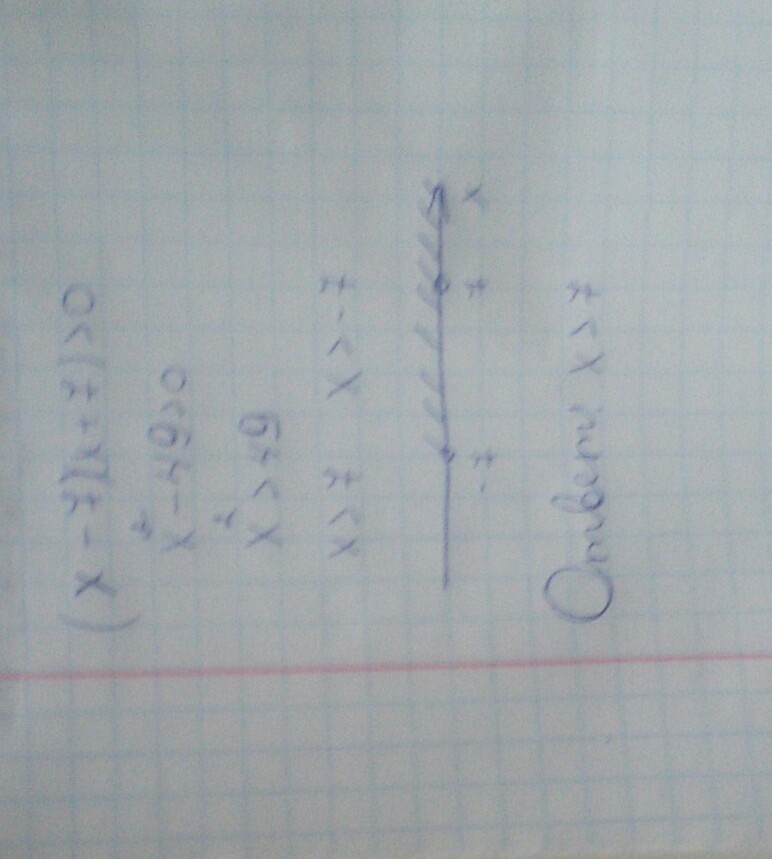 (x-7)(x+7)>0
x²-49>0
x²>49
x>7 x>-7
-7 7 x
Ответ: x>7